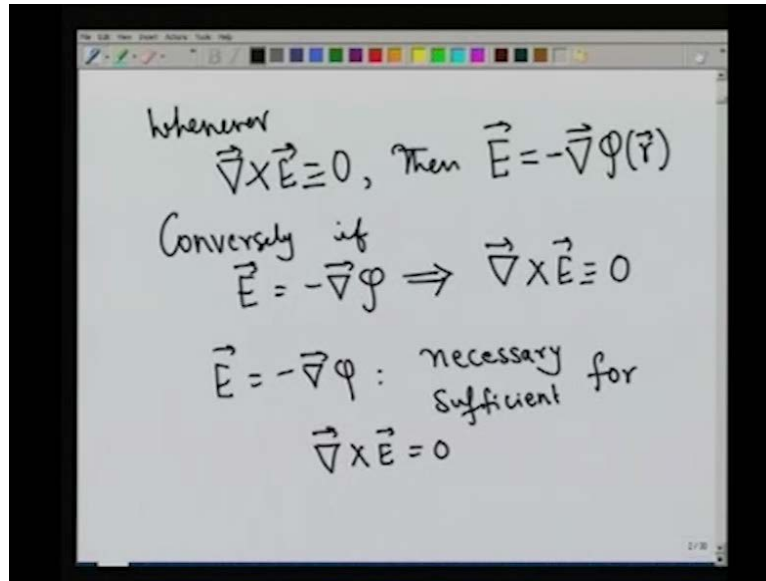 File Edit View Insert Actions Tools Help
Whenever
∇⃗×E⃗≡0, Then E⃗=-∇⃗φ(r⃗)
Conversely if
E⃗ = -∇⃗φ ⟹ ∇⃗×E⃗≡0
E⃗ = -∇⃗φ : necessary
sufficient for
∇⃗×E⃗=0
2/30